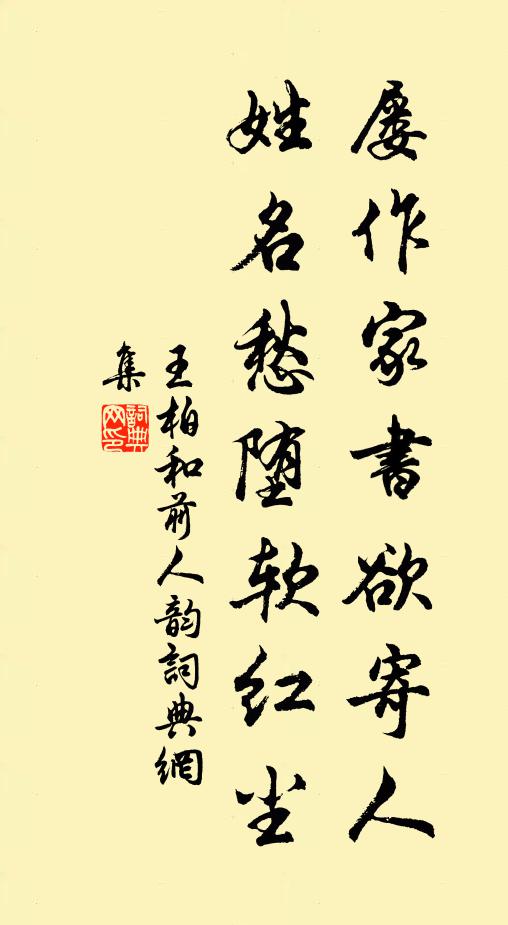 屡作家書欲寄人
姓名愁堕软红尘
王柏和前人韵詞典網
集
詞典网印